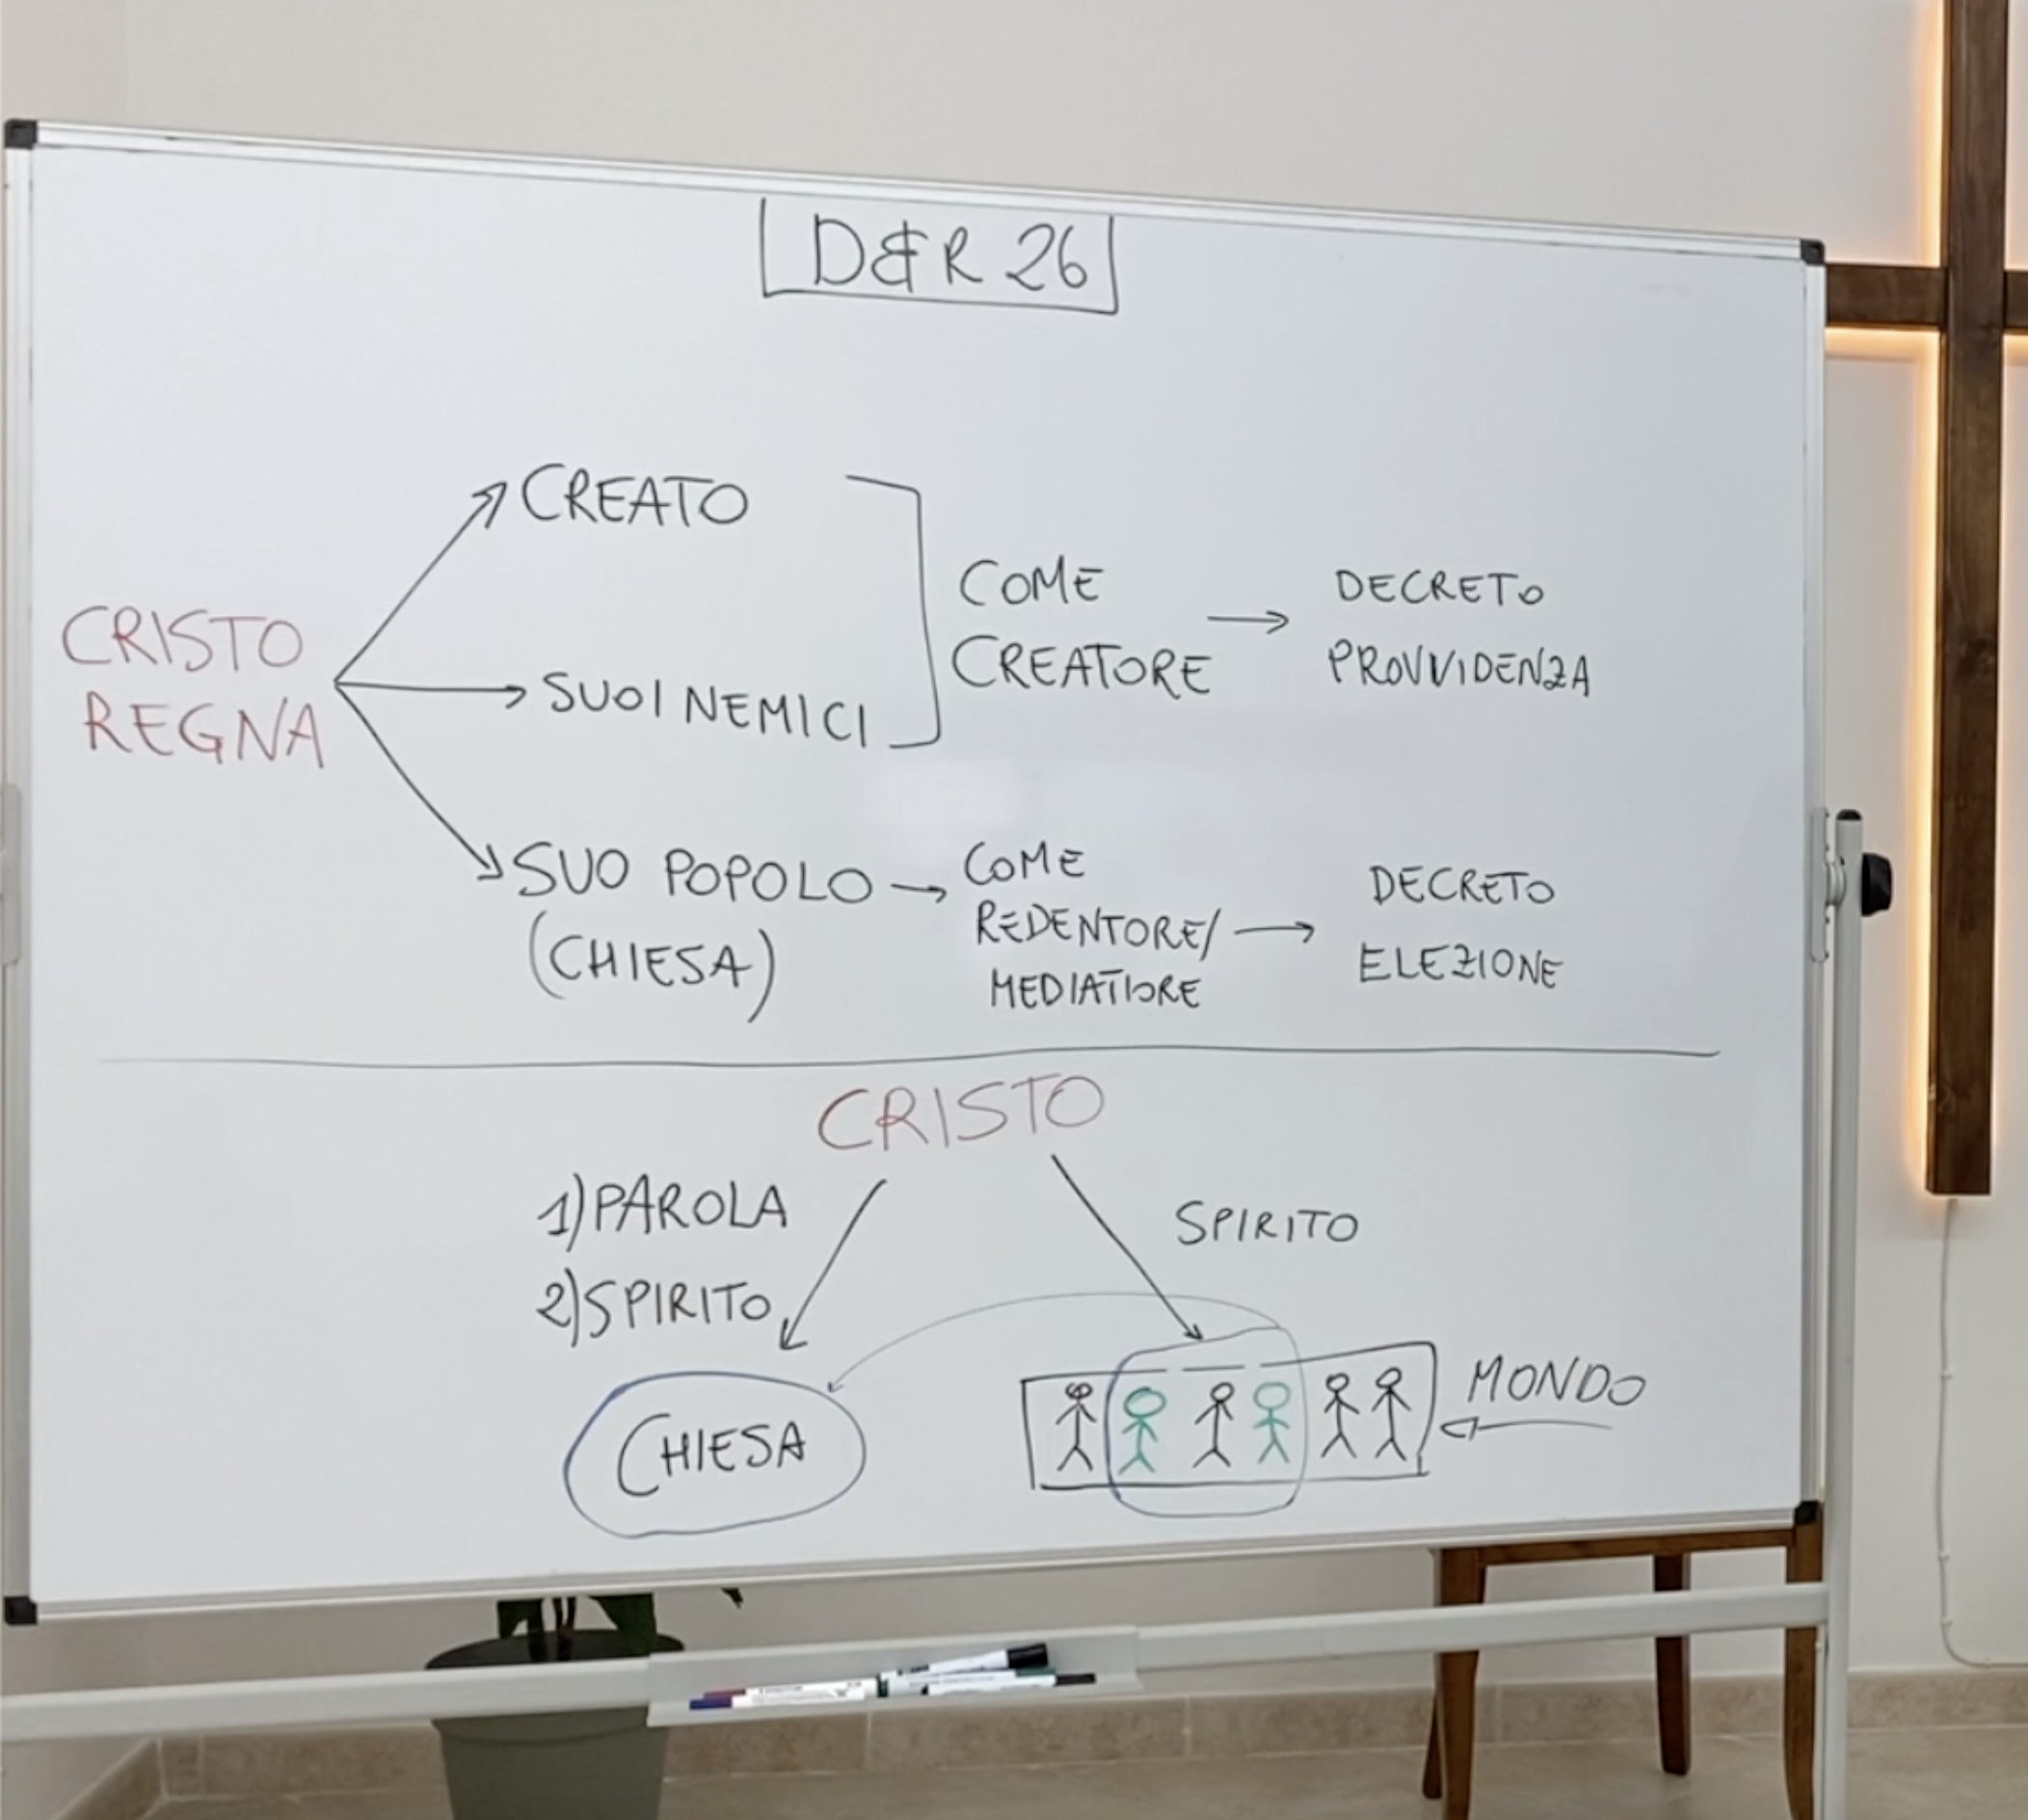 D&R 26
CREATO
CRISTO
REGNA
SUOI NEMICI
COME
CREATORE
DECRETO
PROVVIDENZA
SUO POPOLO
(CHIESA)
COME
REDENTORE/
MEDIATORE
DECRETO
ELEZIONE
CRISTO
1) PAROLA
2) SPIRITO
SPIRITO
CHIESA
MONDO